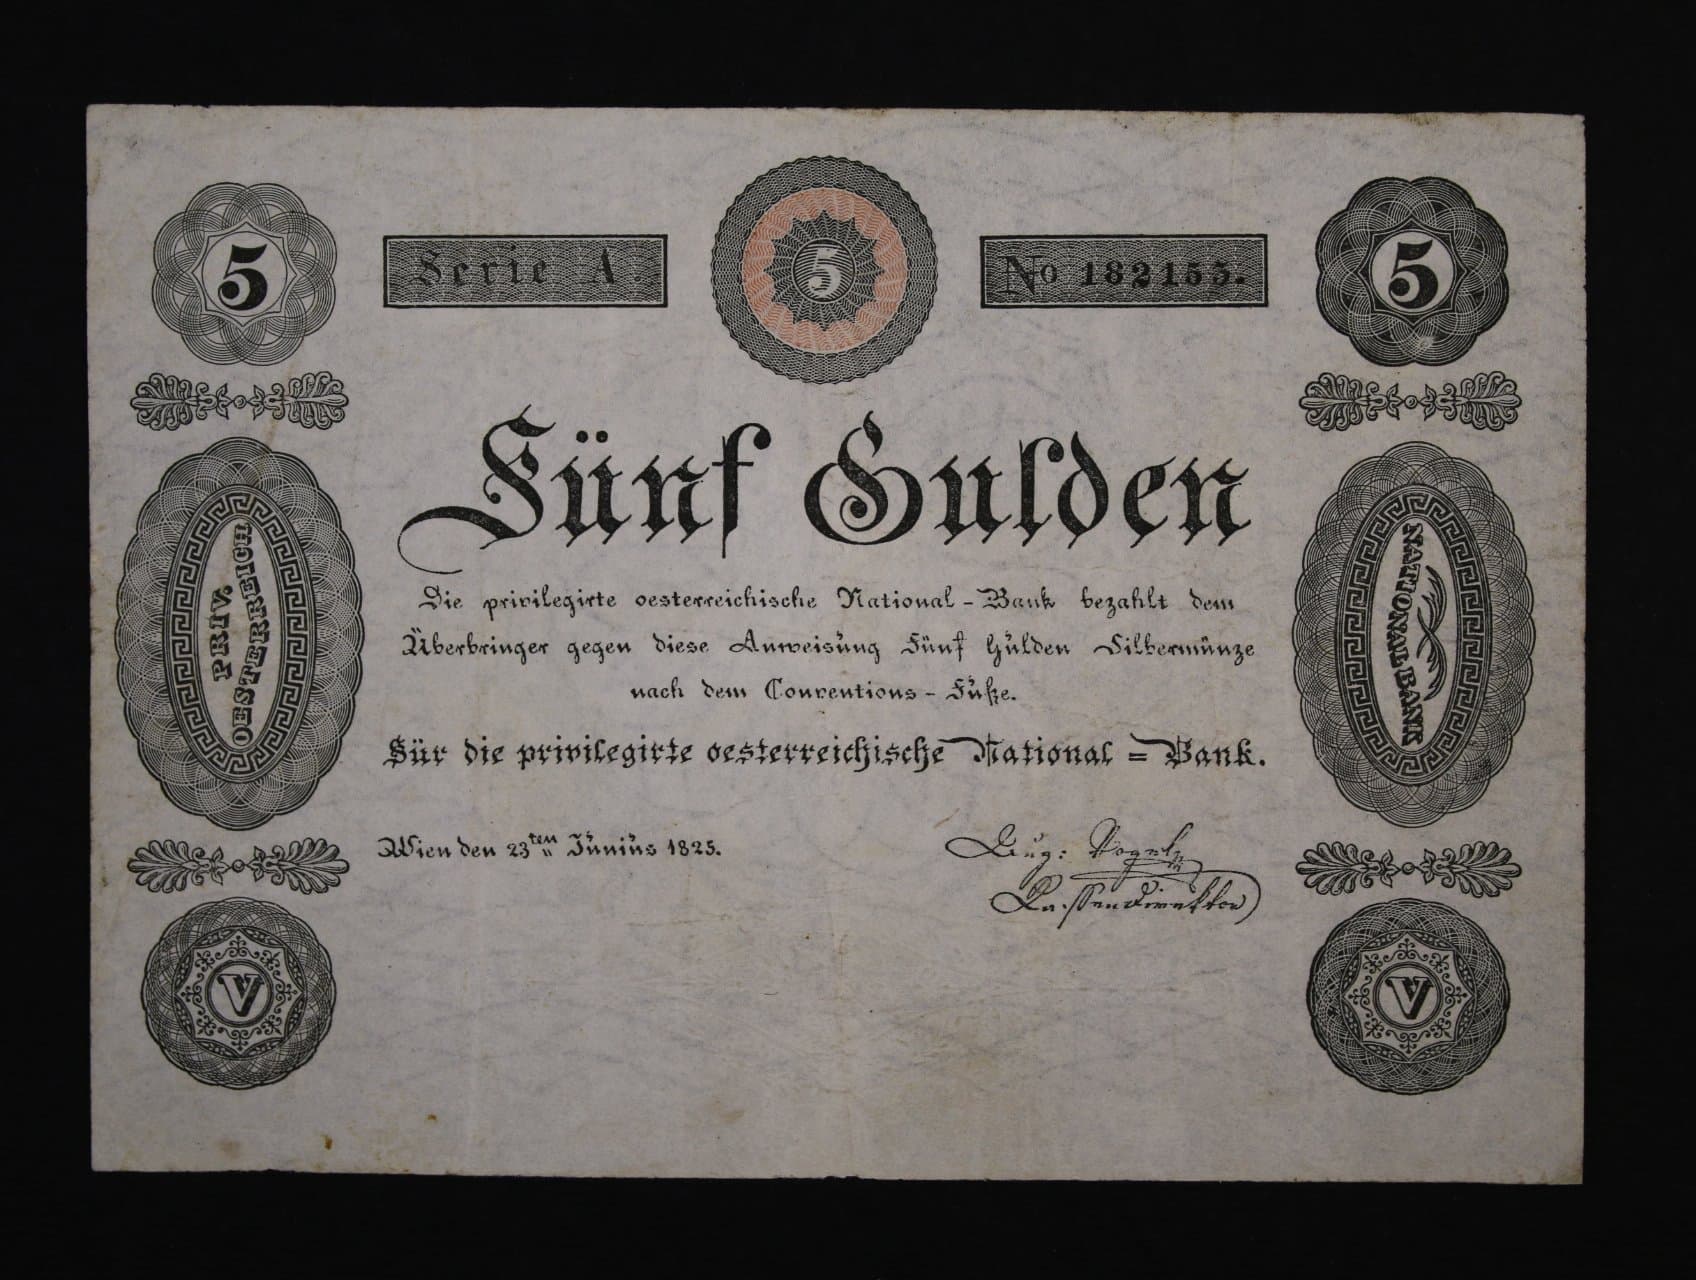 5
Serie A.
5
No 182155.
5
Fünf Gulden
PRIV.
OESTERREICH
Die privilegirte oesterreichische National-Bank bezahlt dem
Überbringer gegen diese Anweisüng Fünf Gülden Silbermünze
nach dem Conventions-Füße.
NATIONALBANK
Für die privilegirte oesterreichische National=Bank.
Wien den 23ten Jüniüs 1825.
Aug:
Kassendirektor
V
V